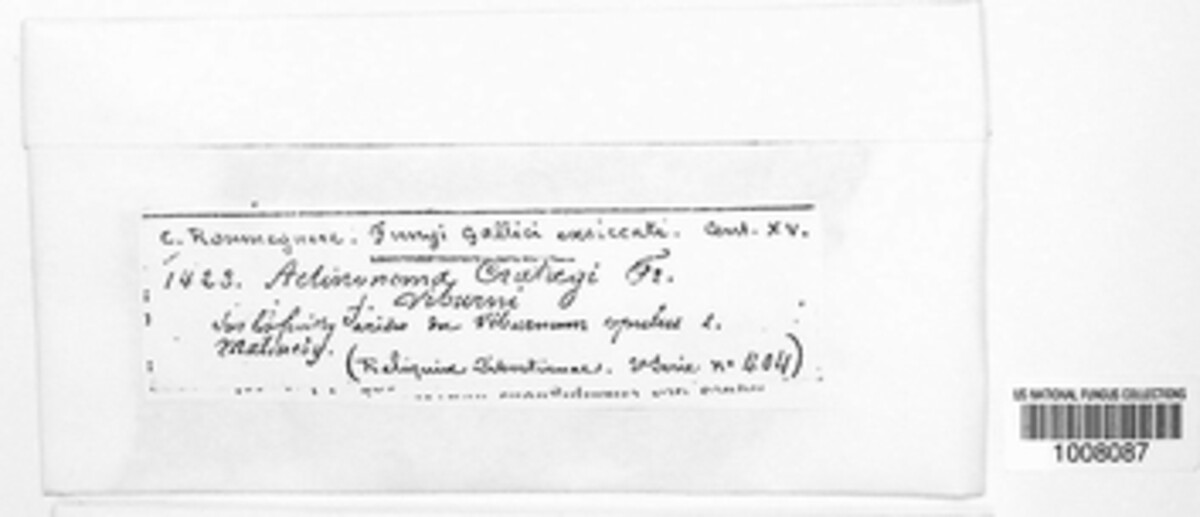 C. Roumeguere. Fungi Gallici exsiccati. Cent. XV.
1423. Actinonema Crataegi Fr.
f. Viburni
Sur les feuilles du Viburnum opulus L.
Malines.
(Reliquiae Libertianae. V Serie no
US NATIONAL FUNGUS COLLECTIONS
1008087